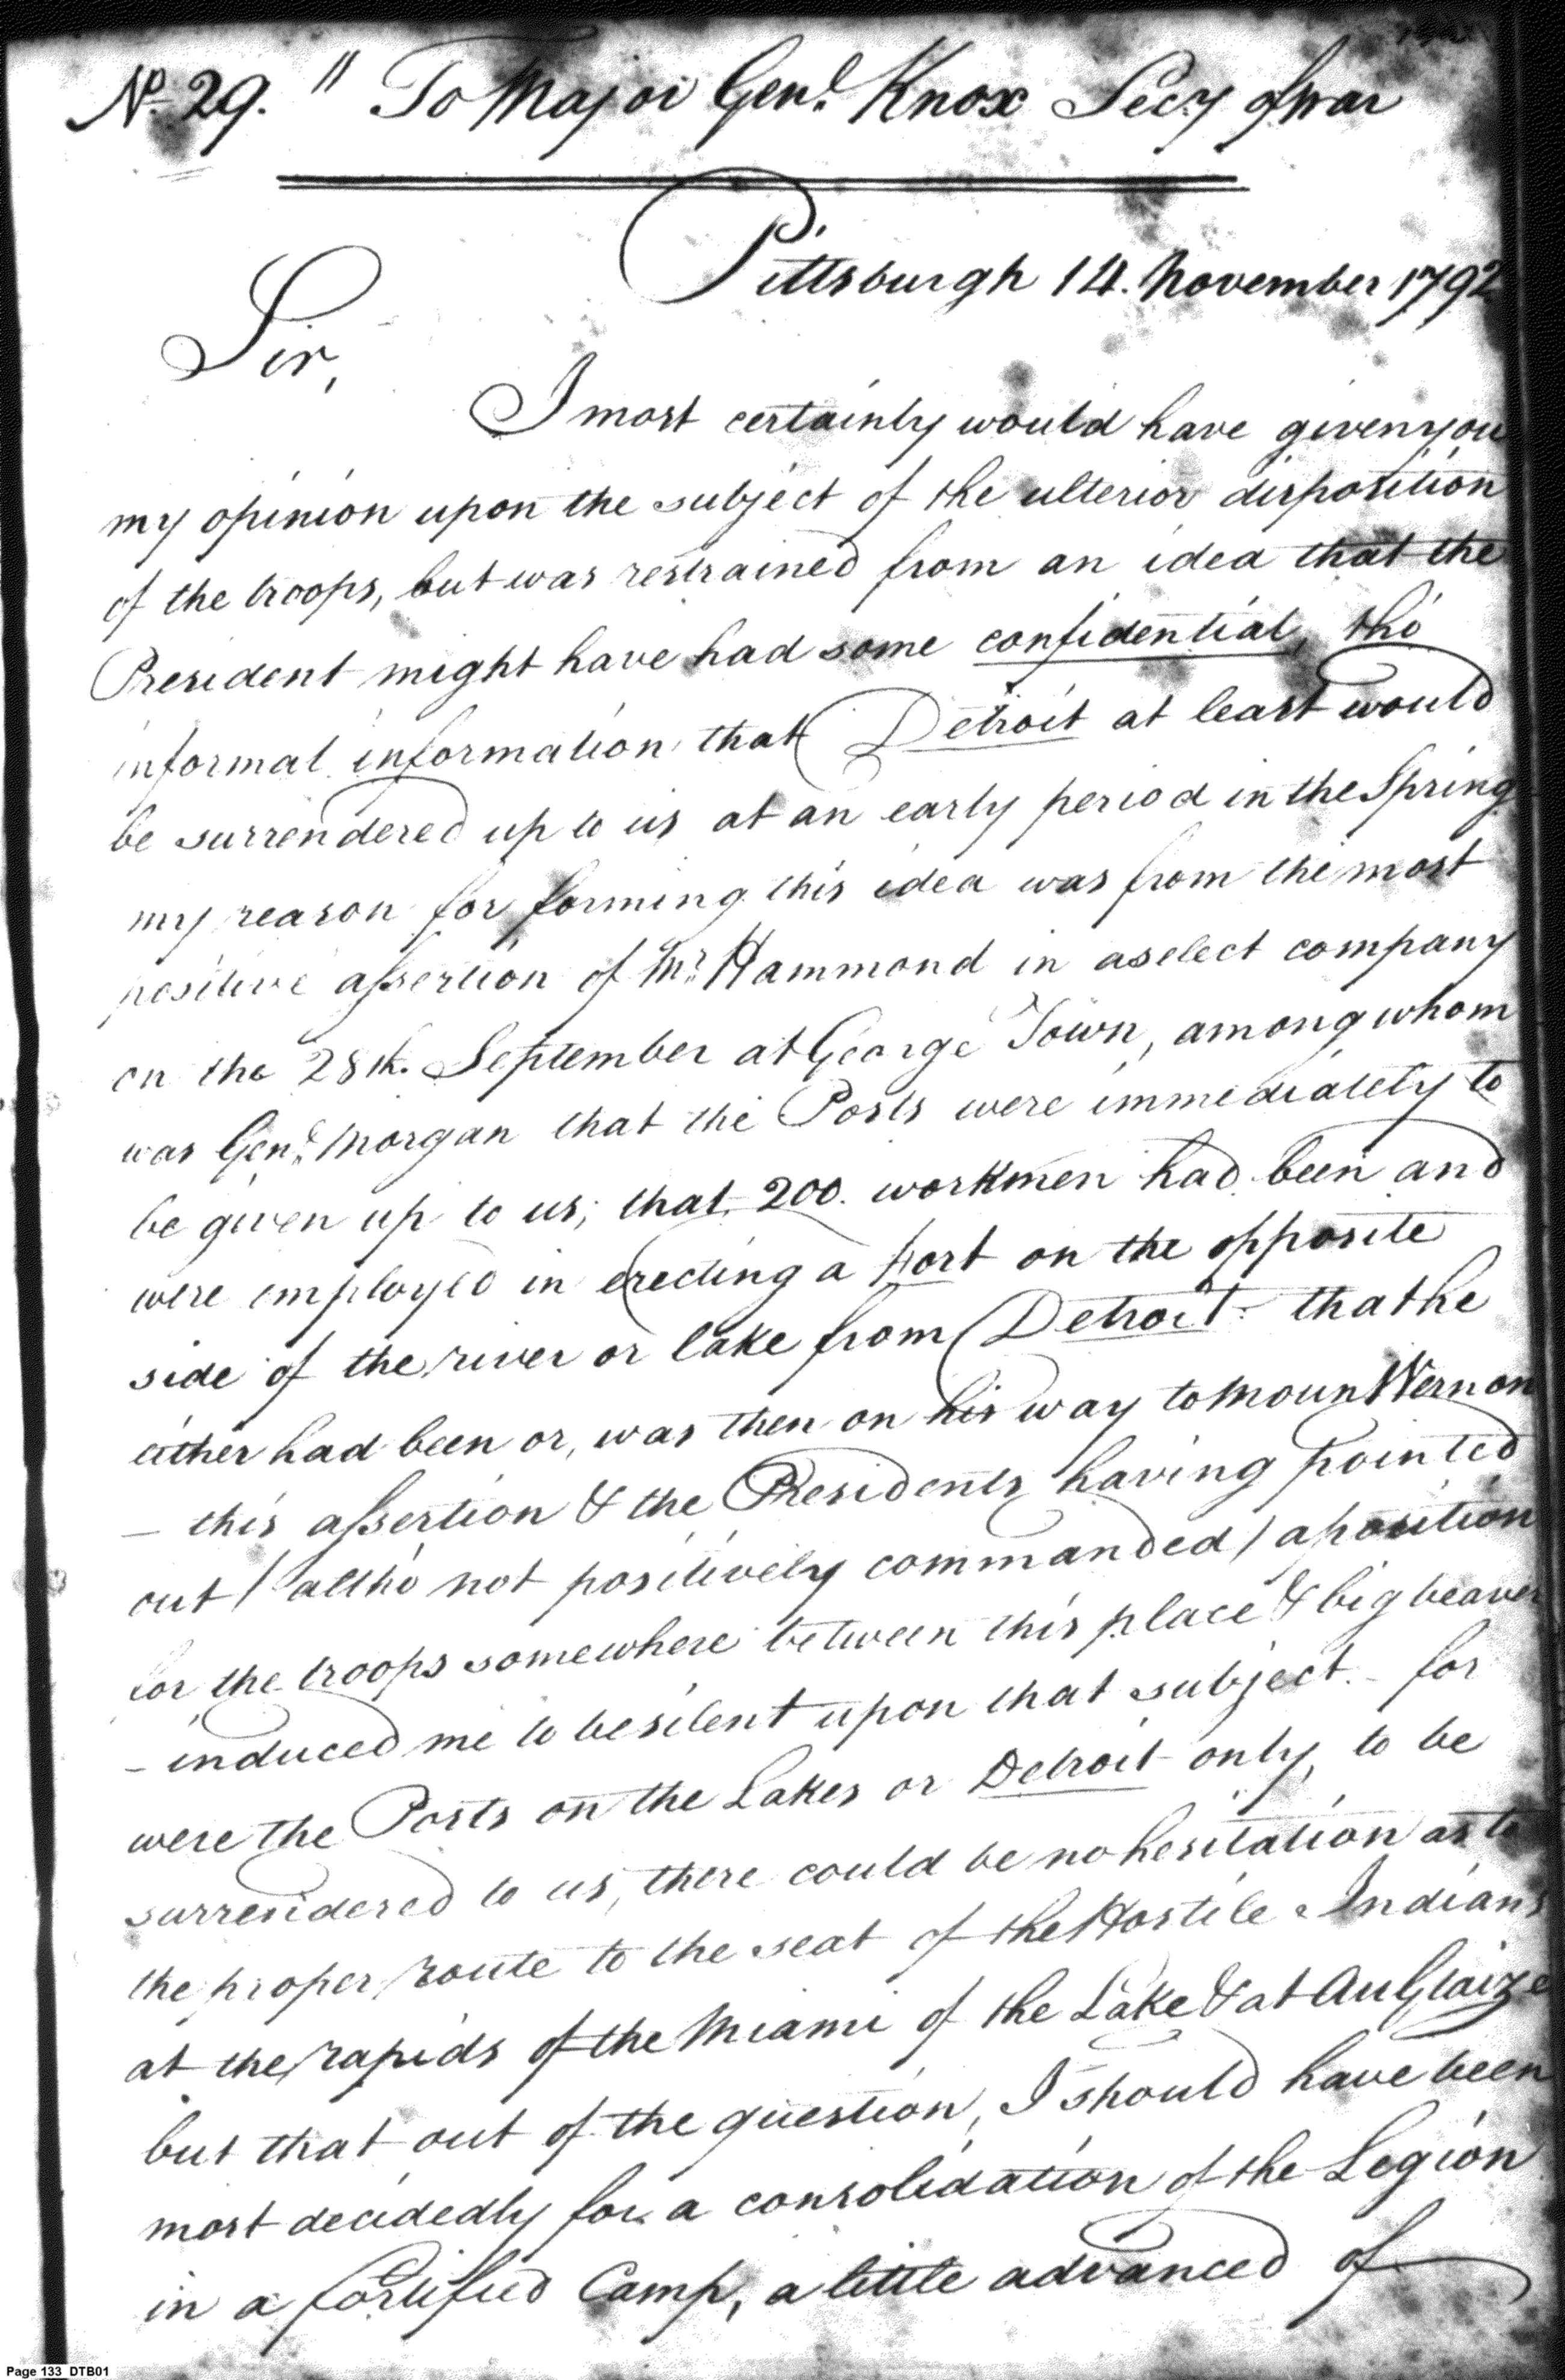 No. 29. " To Major Genl. Knox Secy of war
Pittsburgh 14. November 1792
Sir,
I most certainly would have given you
my opinion upon the subject of the ulterior disposition
of the troops, but was restrained from an idea that the
President might have had some confidential, tho
informal information that Detroit at least would
be surrendered up to us at an early period in the Spring
my reason for forming this idea was from the most
positive assertion of Mr. Hammond in a select company
on the 28th. September at George Town, among whom
was Genl. Morgan that the Posts were immediately to
be given up to us; that 200. workmen had been and
were employed in erecting a fort on the opposite
side of the river or lake from Detroit - that he
either had been or, was then on his way to Mount Vernon
— this assertion & the Presidents having pointed
out (altho not positively commanded) a position
for the troops somewhere between this place & big beaver
- induced me to be silent upon that subject. - for
were the Posts on the Lakes or Detroit only, to be
surrendered to us, there could be no hesitation as to
the proper route to the seat of the Hostile Indians
at the rapids of the Miami of the Lake & at Au Glaize
but that out of the question, I should have been
most decidedly for a consolidation of the Legion
in a fortified Camp, a little advanced of
Page 133 DTB01